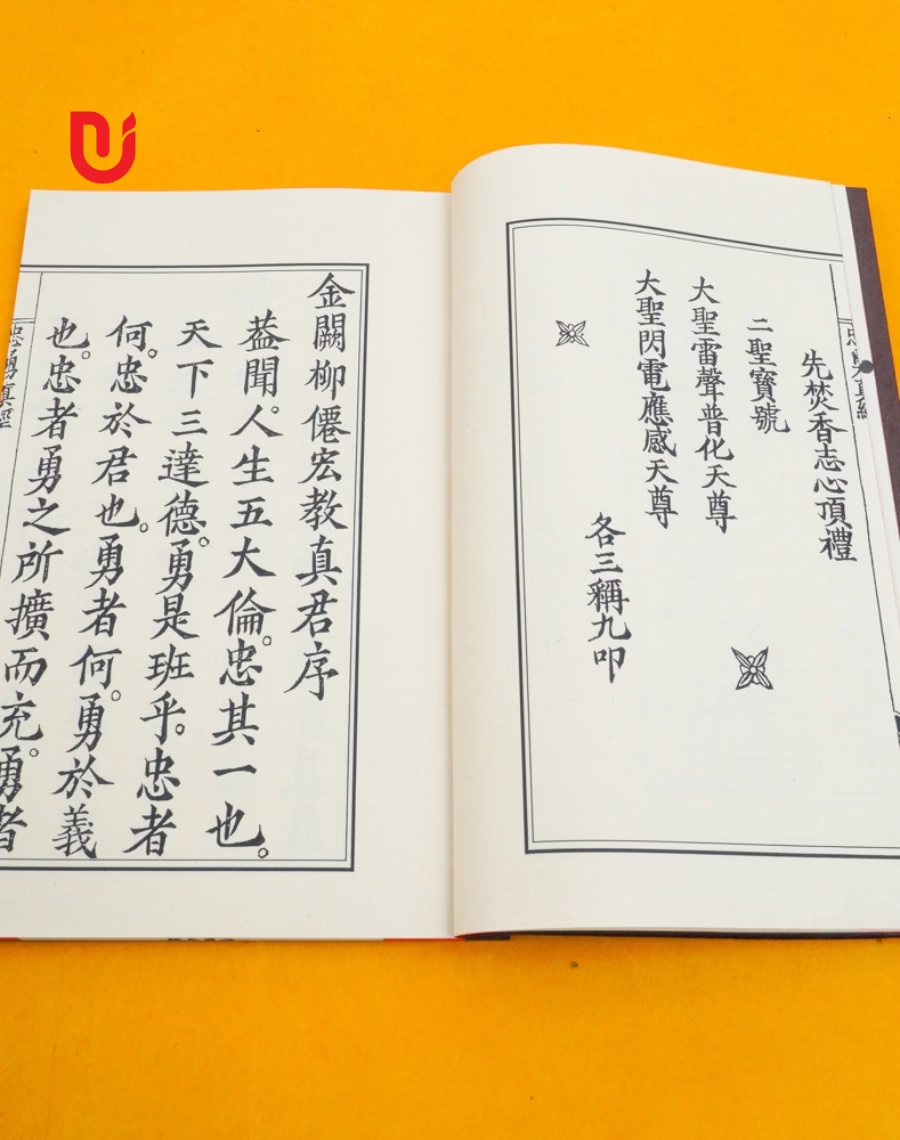 先焚香志心頂禮
二聖寳號
大聖雷聲普化天尊
大聖閃電應感天尊
各三稱九叩
金闕柳僊宏教真君序
葢聞。人生五大倫。忠其一也。
天下三達德。勇是班乎。忠者
何。忠於君也。勇者何。勇於義
也。忠者勇之所擴而充。勇者
忠勇真經